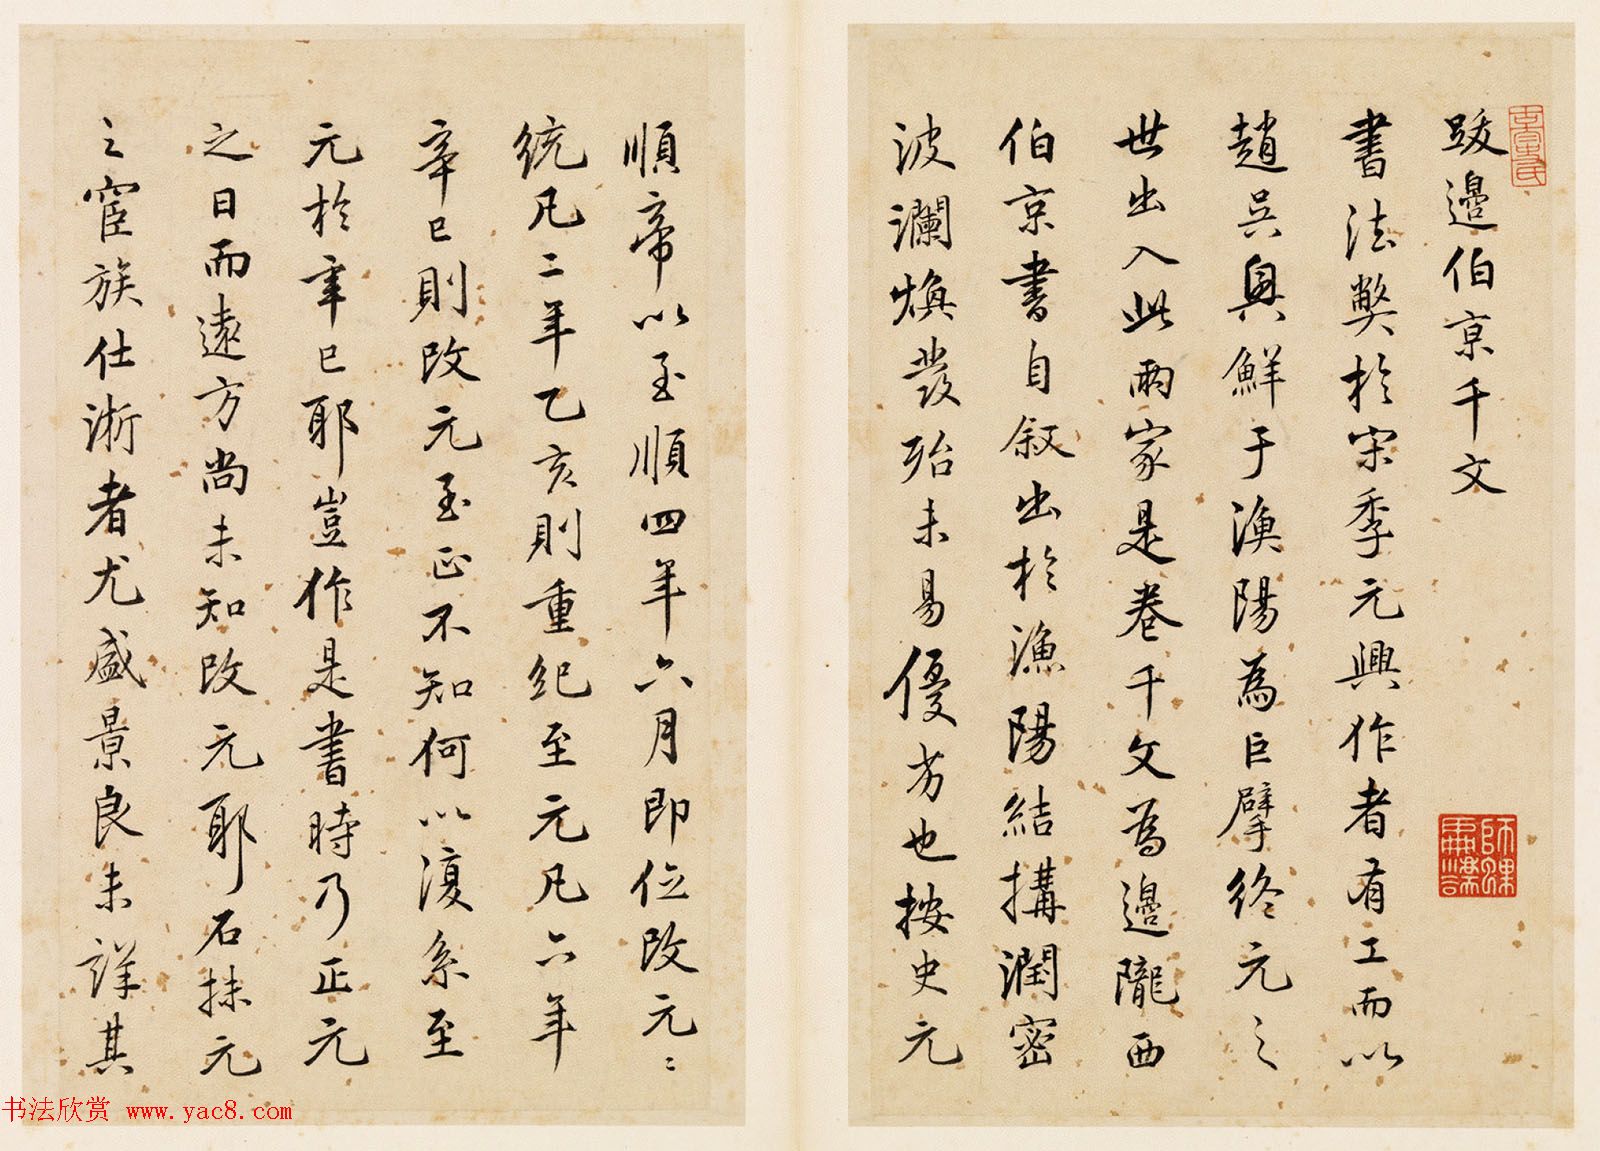 跋邊伯京千文
書法弊於宋季元興作者有工而以
趙吳興鮮于漁陽為巨擘終元之
世出入此兩家是卷千文為邊隴西
伯京書自叙出於漁陽結搆潤密
波瀾煥發殆未易優劣也按史元
順帝以至順四年六月即位改元〻
統凡二年乙亥則重紀至元凡六年
辛巳則改元至正不知何以復系至
元於辛巳耶豈作是書時乃正元
之日而遠方尚未知改元耶石抹元
之宦族仕淅者尤盛景良未詳其
书法欣赏 www.yac8.com